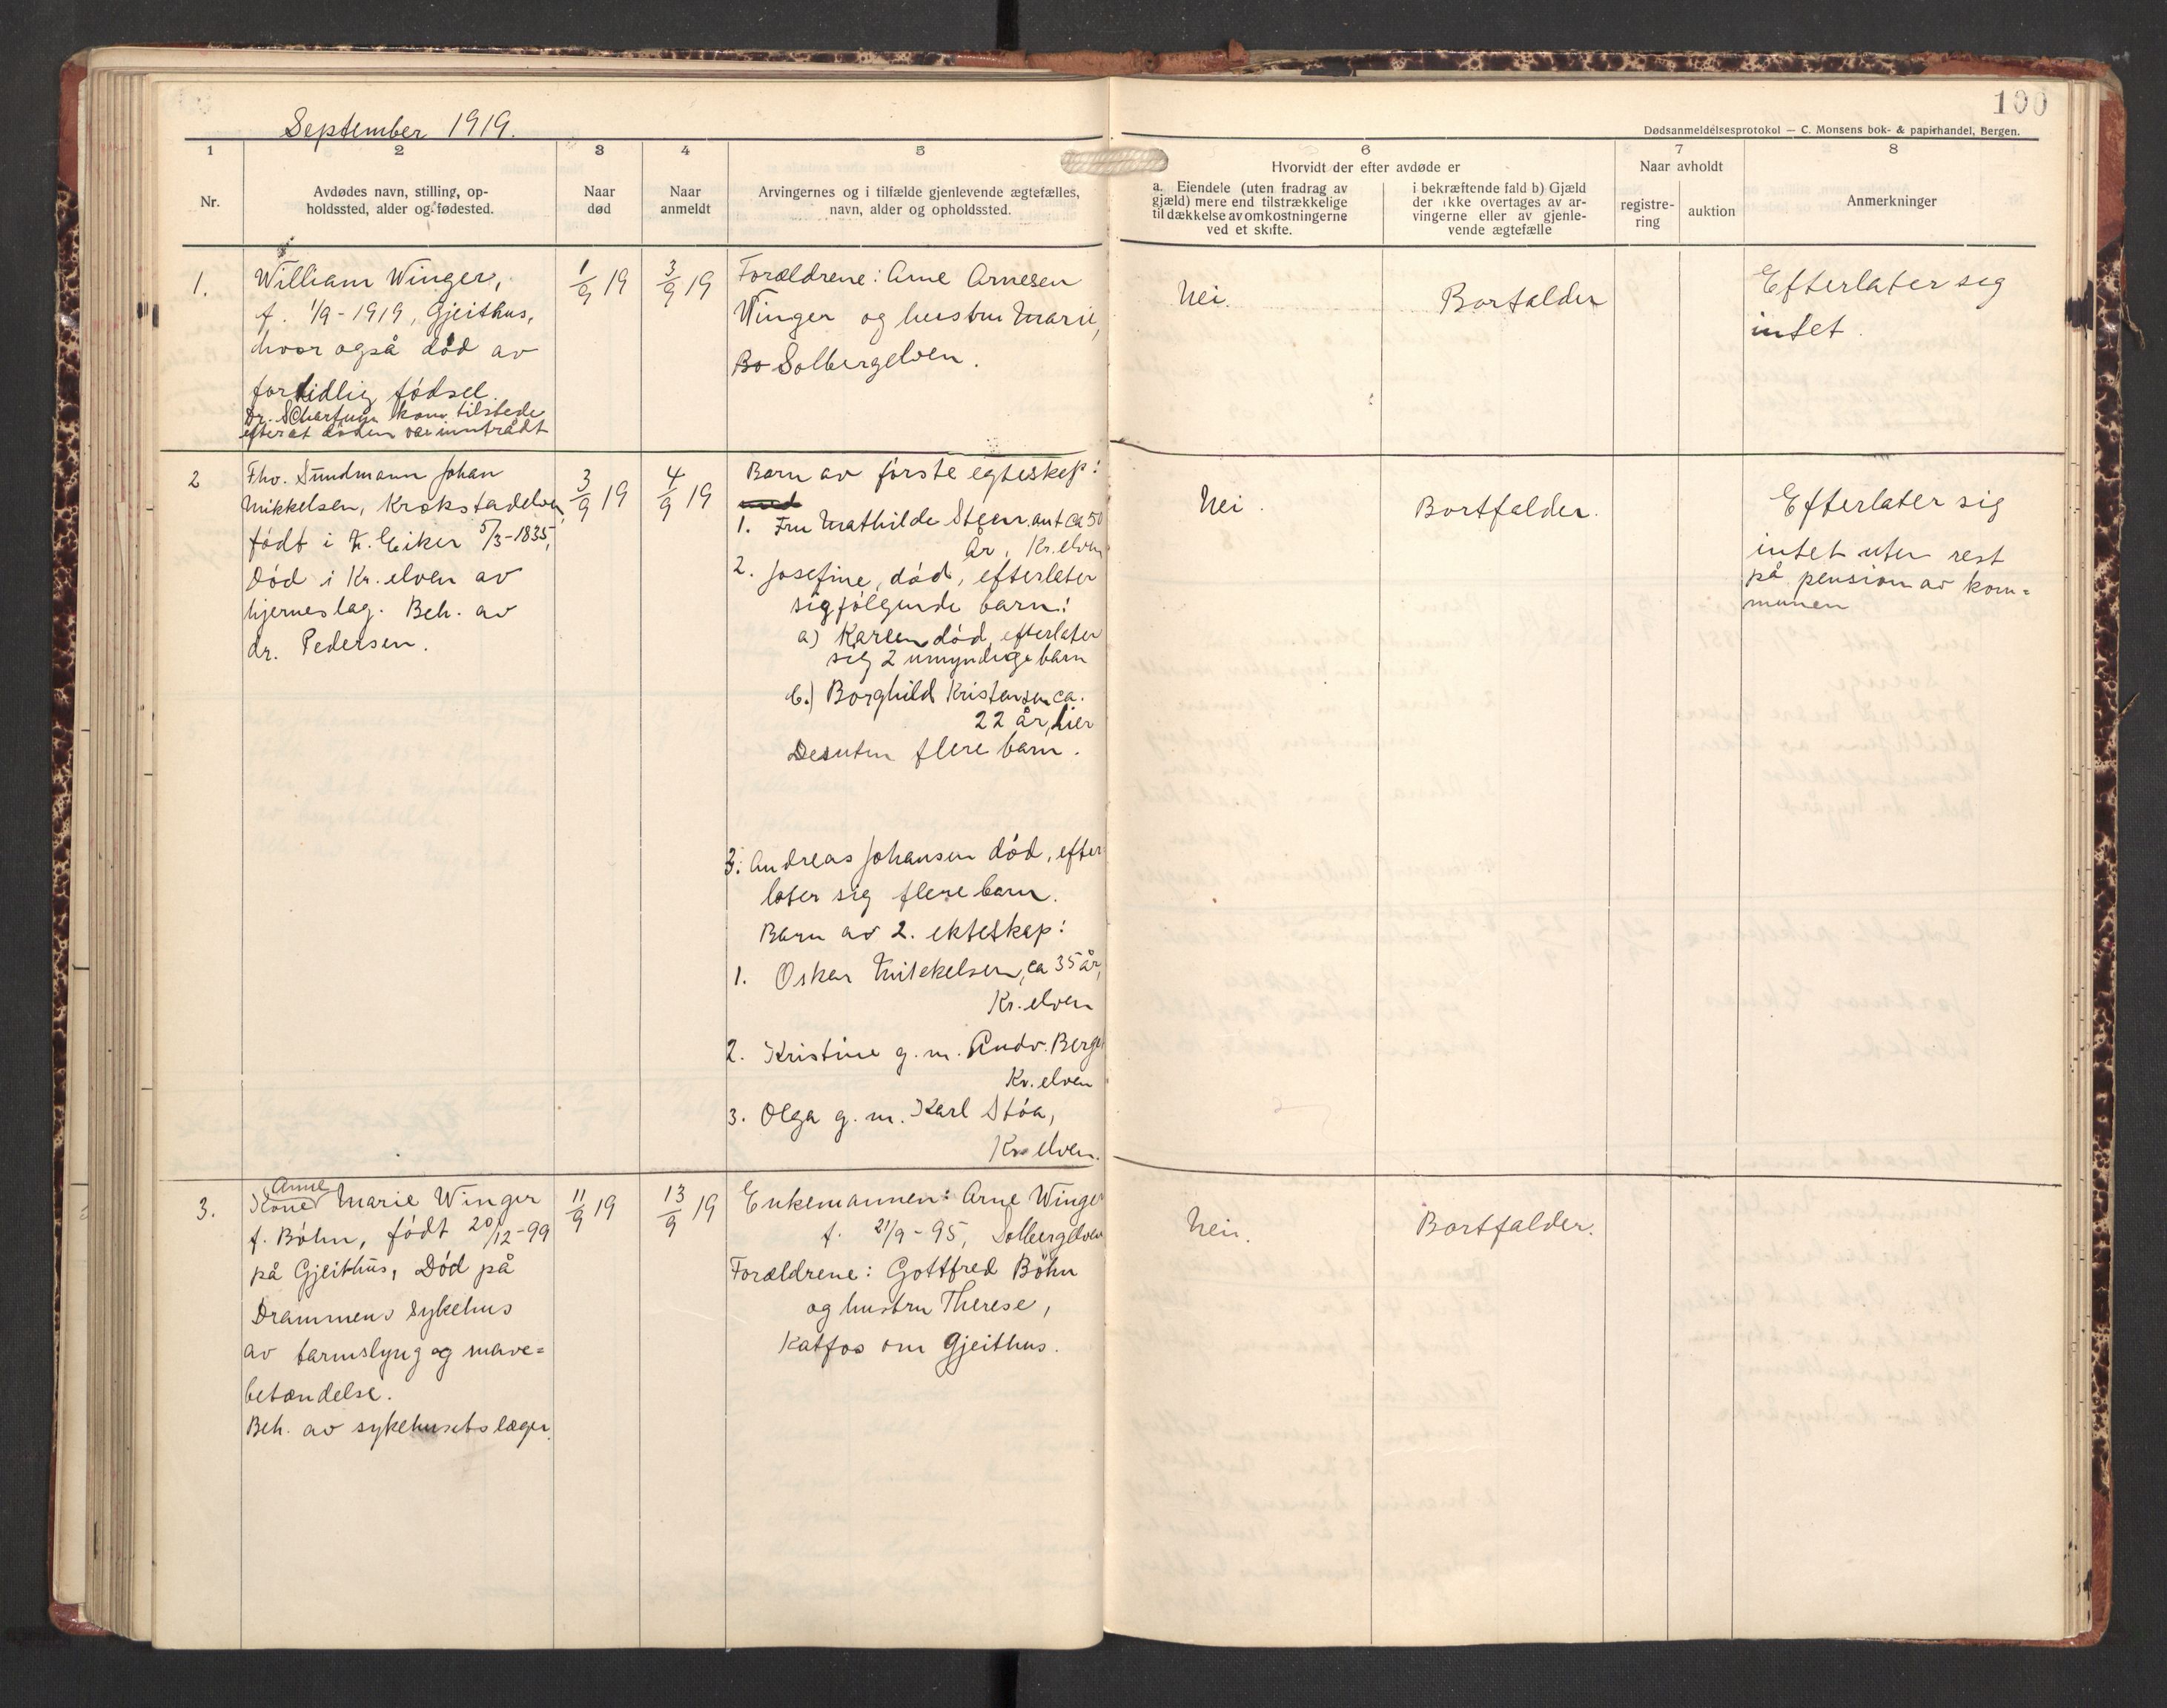 September 1919.
100
Dødsanmeldelsesprotokol — C. Monsens bok- & papirhandel, Bergen.
1
2
3
4
5
6
7
8
Nr.
Avdødes navn, stilling, op-
holdssted, alder og fødested.
Naar
død
Naar
anmeldt
Arvingernes og i tilfælde gjenlevende ægtefælles,
navn, alder og opholdssted.
Hvorvidt der efter avdøde er
a. Eiendele (uten fradrag av
gjæld) mere end tilstrækkelige
til dækkelse av omkostningerne
ved et skifte.
i bekræftende fald b) Gjæld
der ikke overtages av ar-
vingerne eller av gjenle-
vende ægtefælle
Naar avholdt
registre-
ring
auktion
Anmerkninger
1.
William Winger,
f. 1/9-1919, Gjeithus,
hvor også død av
fortidlig fødsel.
Dr. Schartum kom tilstede
efterat døden var inntrådt
1/9 19
3/9 19
Forældrene: Arne Arnesen
Winger og hustru Marie,
Bo Solbergelven.
Nei.
Bortfalder
Efterlater sig
intet.
2
Fhv. Sundmann Johan
Mikkelsen, Krokstadelven,
født i N. Eiker 5/3-1835,
Død i Kr. elven av
hjerneslag. Beh. av
dr. Pedersen.
3/9 19
4/9 19
Barn av første egteskap:
1. Fru Mathilde ca 50
år, Kr. elven
2. Josefine, død, efterlater
sig følgende barn:
a) Karen død, efterlater
sig 2 umyndige barn
b.) Borghild Kristensen ca.
22 år, Lier
Desuten flere barn.
3. Andreas Johansen død, efter
later sig flere barn.
Barn av 2. ekteskap:
1. Oskar Mikkelsen, ca 35 år,
Kr. elven
2. Kristine g. m. Andr. Berge
Kr. elven
3. Olga g. m. Karl Støa,
Kr. elven.
Nei.
Bortfalder.
Efterlater sig
intet uten rest
på pension av kom=
munen
3.
Anne
Kone Marie Winger
f. Bøhn, født 20/12-99
på Gjeithus, Død på
Drammens Sykehus
av tarmslyng og mave=
betændelse.
Beh. av sykehusets læger.
11/9 19
13/9 19
Enkemannen: Arne Winger
f. 21/9-95, Solbergelven
Forældrene: Gottfred Bøhn
og hustru Therese,
Katfos om Gjeithus.
Nei.
Bortfalder.